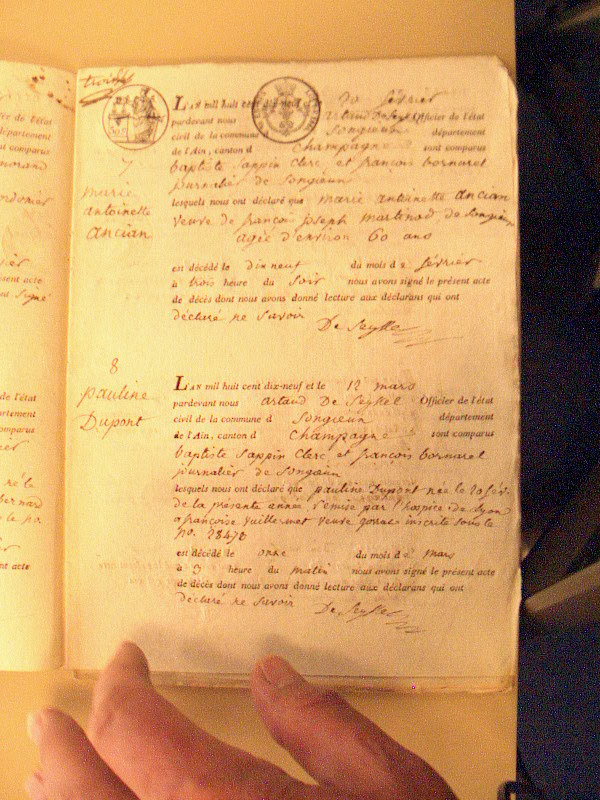 7
marie
antoinette
ancian
LAN mil huit cent dix-neuf 20 février
pardevant nous artaud de Seyssel Officier de l'état
civil de la commune Songieu département
de l'Ain, canton d Champagne sont comparus
baptiste Sappin Clerc et françois bornarel
journalier de Songieu
lesquels nous ont déclaré que marie antoinette ancian
veuve de françois joseph martinod de Songieu
agié d'environ 60 ans
est décédé le dix neuf du mois de février
à trois heure du soir nous avons signé le présent acte
de décès dont nous avons donné lecture aux déclarans qui ont
déclaré ne Savoir De Seyssel
8
pauline
Dupont
LAN mil huit cent dix-neuf et le 12 mars
pardevant nous artaud De Seyssel Officier de l'état
civil de la commune d Songieu département
de l'Ain, canton d Champagne sont comparus
baptiste Sappin Clerc et françois bornarel
journalier de Songieu
lesquels nous ont déclaré que pauline Dupont née le 20 fév.
de la présente année remise par l'hospice de Lyon
a françoise vuillermet veuve inscrite sous le
no. 28478
est décédé le onze du mois de mars
à 9 heure du matin nous avons signé le présent acte
de décès dont nous avons donné lecture aux déclarans qui ont
déclaré ne Savoir De Seyssel